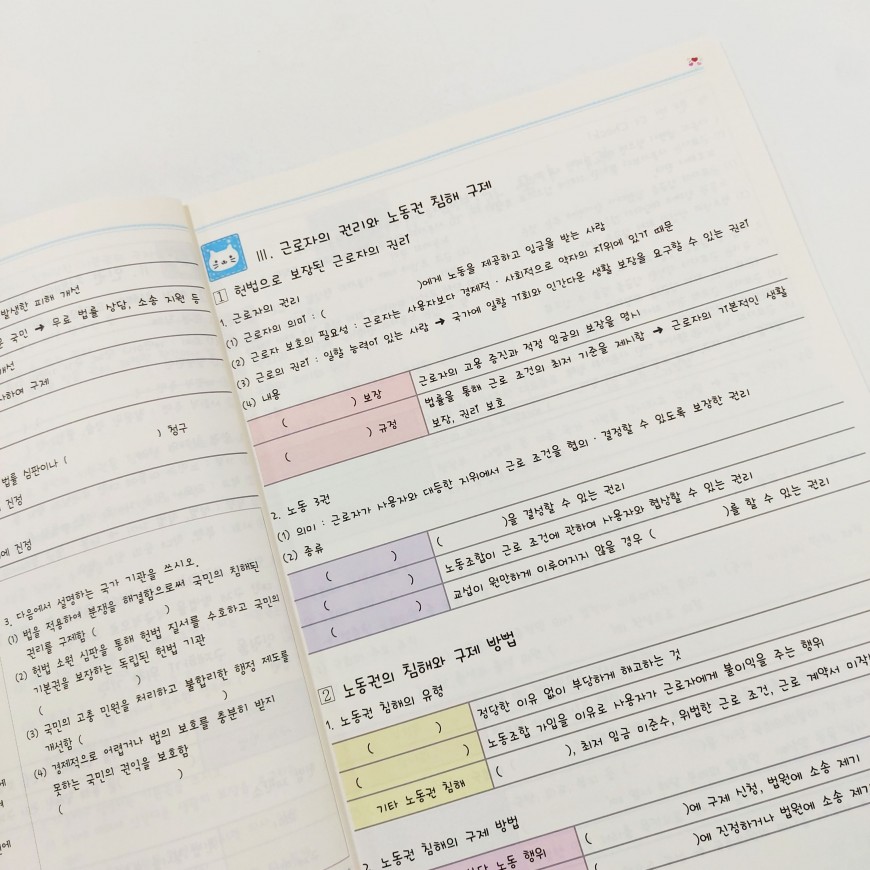 발생한 피해 개선
국민 → 무료 법률 상담, 소송 지원 등
개선
하여 구제
) 청구
법률 심판이나 (
진정
에 진정
3. 다음에서 설명하는 국가 기관을 쓰시오.
(1) 법을 적용하여 분쟁을 해결함으로써 국민의 침해된
권리를 구제함 ( )
(2) 헌법 소원 심판을 통해 헌법 질서를 수호하고 국민의
기본권을 보장하는 독립된 헌법 기관
( )
(3) 국민의 고충 민원을 처리하고 불합리한 행정 제도를
개선함 ( )
(4) 경제적으로 어렵거나 법의 보호를 충분히 받지
못하는 국민의 권익을 보호함
( )
III. 근로자의 권리와 노동권 침해 구제
1 헌법으로 보장된 근로자의 권리
1. 근로자의 권리
(1) 근로자의 의미 : ( )에게 노동을 제공하고 임금을 받는 사람
(2) 근로자 보호의 필요성 : 근로자는 사용자보다 경제적 · 사회적으로 약자의 지위에 있기 때문
(3) 근로의 권리 : 일할 능력이 있는 사람 → 국가에 일할 기회와 인간다운 생활 보장을 요구할 수 있는 권리
(4) 내용
( ) 보장 근로자의 고용 증진과 적정 임금의 보장을 명시
( ) 규정 법률을 통해 근로 조건의 최저 기준을 제시함 → 근로자의 기본적인 생활
보장, 권리 보호
2. 노동 3권
(1) 의미 : 근로자가 사용자와 대등한 지위에서 근로 조건을 협의 · 결정할 수 있도록 보장한 권리
(2) 종류
( ) ( )을 결성할 수 있는 권리
( ) 노동조합이 근로 조건에 관하여 사용자와 협상할 수 있는 권리
( ) 교섭이 원만하게 이루어지지 않을 경우 ( )를 할 수 있는 권리
2 노동권의 침해와 구제 방법
1. 노동권 침해의 유형
( ) 정당한 이유 없이 부당하게 해고하는 것
( ) 노동조합 가입을 이유로 사용자가 근로자에게 불이익을 주는 행위
기타 노동권 침해 ( ), 최저 임금 미준수, 위법한 근로 조건, 근로 계약서 미작
2. 노동권 침해의 구제 방법
( )에 구제 신청, 법원에 소송 제기
노동 행위 ( )에 진정하거나 법원에 소송 제기